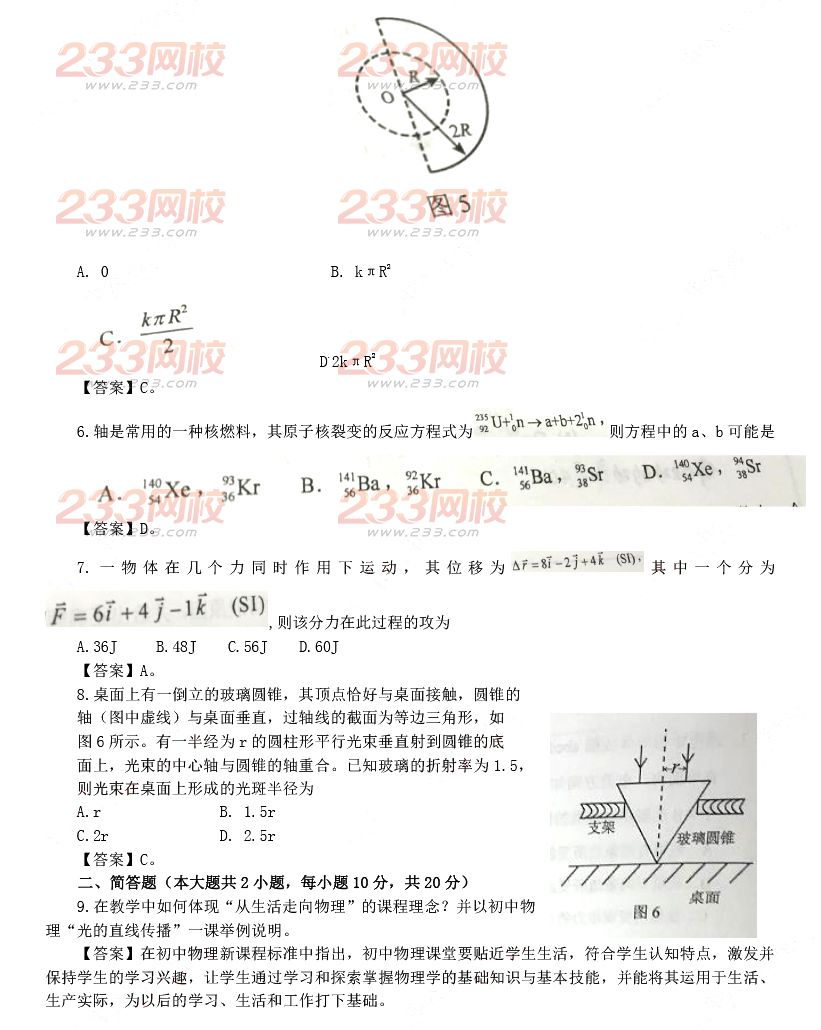 233网校 233网校
www.233.com www.233.com
R
O
2R
图5
233网校 233网校
www.233.com www.233.com
A. 0 B. kπR²
C. kπR²/2
D.2kπR²
233网校 233网校
www.233.com www.233.com
【答案】C。
6.轴是常用的一种核燃料，其原子核裂变的反应方程式为 ²³⁵₉₂U+¹₀n→a+b+2¹₀n，则方程中的a、b可能是
A. ¹⁴⁰₅₄Xe，⁹³₃₆Kr B. ¹⁴¹₅₆Ba，⁹²₃₆Kr C. ¹⁴¹₅₆Ba，⁹³₃₈Sr D. ¹⁴⁰₅₄Xe，⁹⁴₃₈Sr
233网校 233网校
www.233.com www.233.com
【答案】D。
7.一物体在几个力同时作用下运动，其位移为 Δr⃗=8i⃗-2j⃗+4k⃗ (SI)，其中一个分为
F⃗=6i⃗+4j⃗-1k⃗ (SI),则该分力在此过程的攻为
A.36J B.48J C.56J D.60J
【答案】A。
8.桌面上有一倒立的玻璃圆锥，其顶点恰好与桌面接触，圆锥的
轴（图中虚线）与桌面垂直，过轴线的截面为等边三角形，如
图6所示。有一半经为r的圆柱形平行光束垂直射到圆锥的底
面上，光束的中心轴与圆锥的轴重合。已知玻璃的折射率为1.5，
则光束在桌面上形成的光斑半径为
A.r B. 1.5r
C.2r D. 2.5r
【答案】C。
r
支架
玻璃圆锥
桌面
图6
二、简答题（本大题共2小题，每小题10分，共20分）
9.在教学中如何体现“从生活走向物理”的课程理念？并以初中物
理“光的直线传播”一课举例说明。
【答案】在初中物理新课程标准中指出，初中物理课堂要贴近学生生活，符合学生认知特点，激发并
保持学生的学习兴趣，让学生通过学习和探索掌握物理学的基础知识与基本技能，并能将其运用于生活、
生产实际，为以后的学习、生活和工作打下基础。